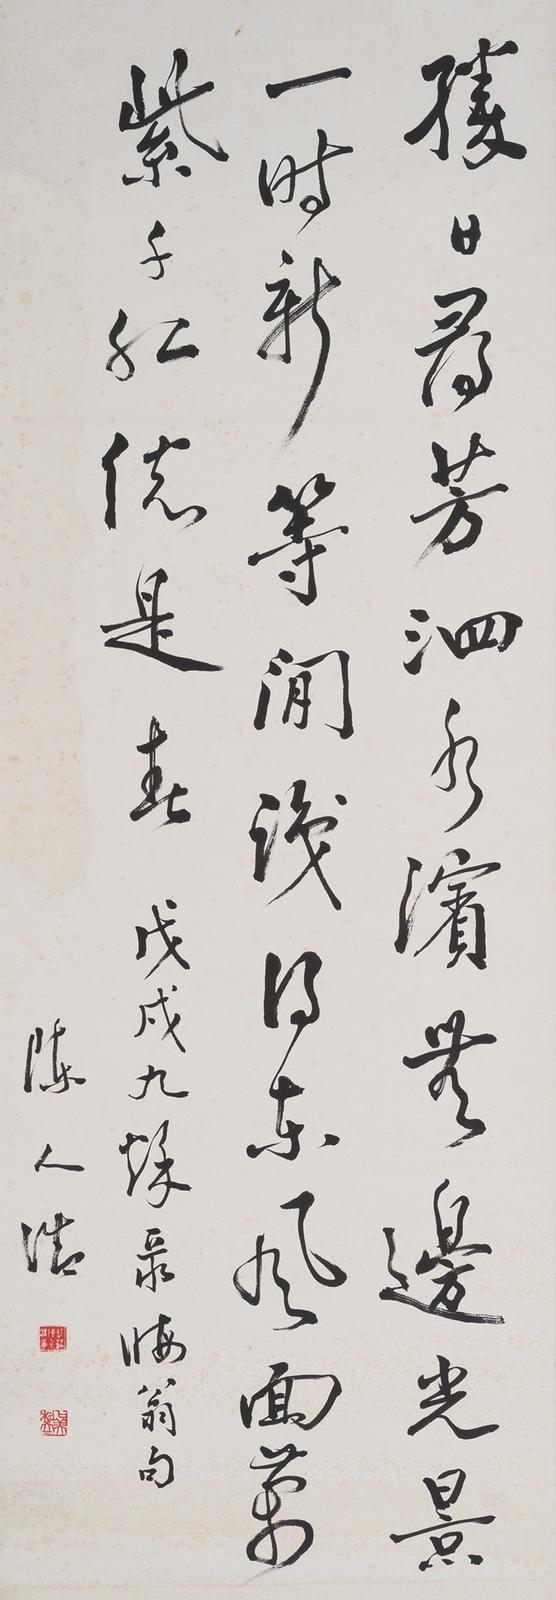 勝日尋芳泗水濱無邊光景
一時新等閒識得東風面萬
紫千紅總是春 戊戌九秋录晦翁句
陳人浩